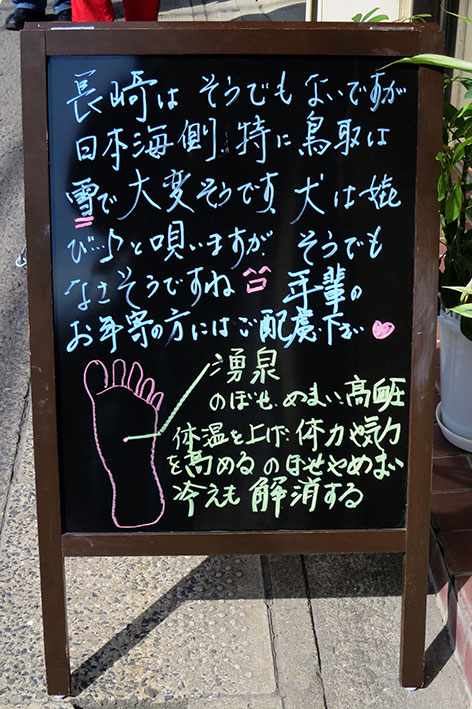 長崎は そうでもないですが
日本海側、特に鳥取は
雪で大変そうです、犬は喜
び…♪と唄いますが そうでも
なさそうですね
年輩の
お年寄の方にはご配慮下さい
湧泉
のぼせ、めまい、高血圧
体温を上げ 体力や気力
を高める のぼせやめまい
冷えも 解消する